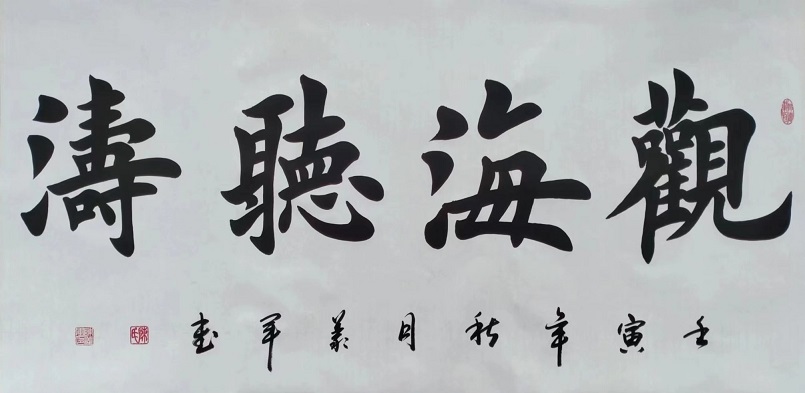 觀海聽濤
壬寅年秋月義軍書